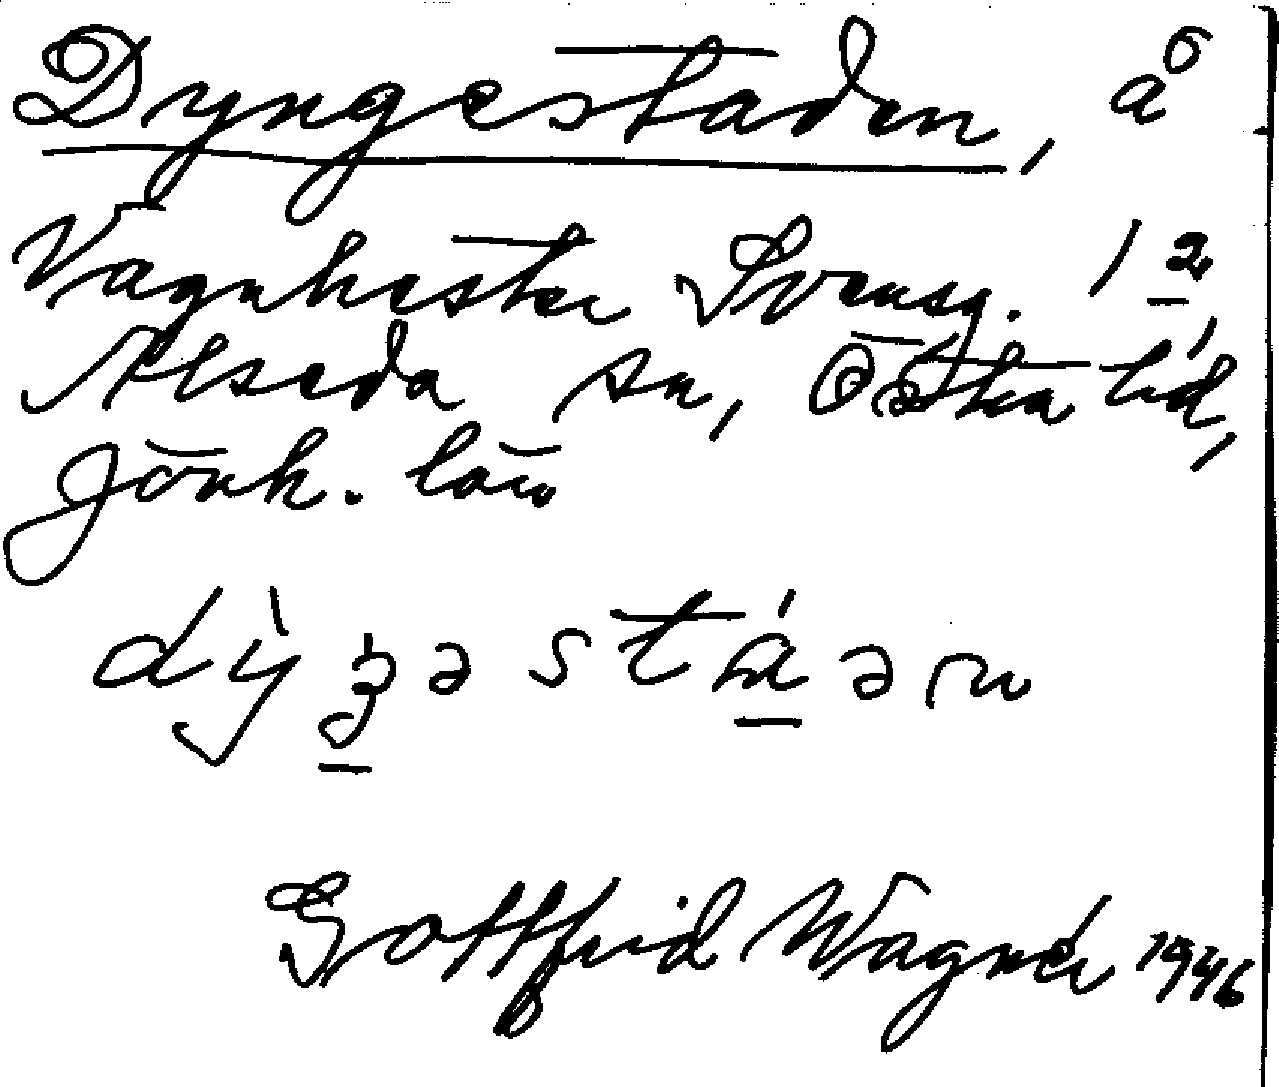 Dyngestaden, å
Vagnhester Svensg. 1 2,
Alseda sn, Östra hd,
Jönk. län
Gottfrid Wagnér 1946